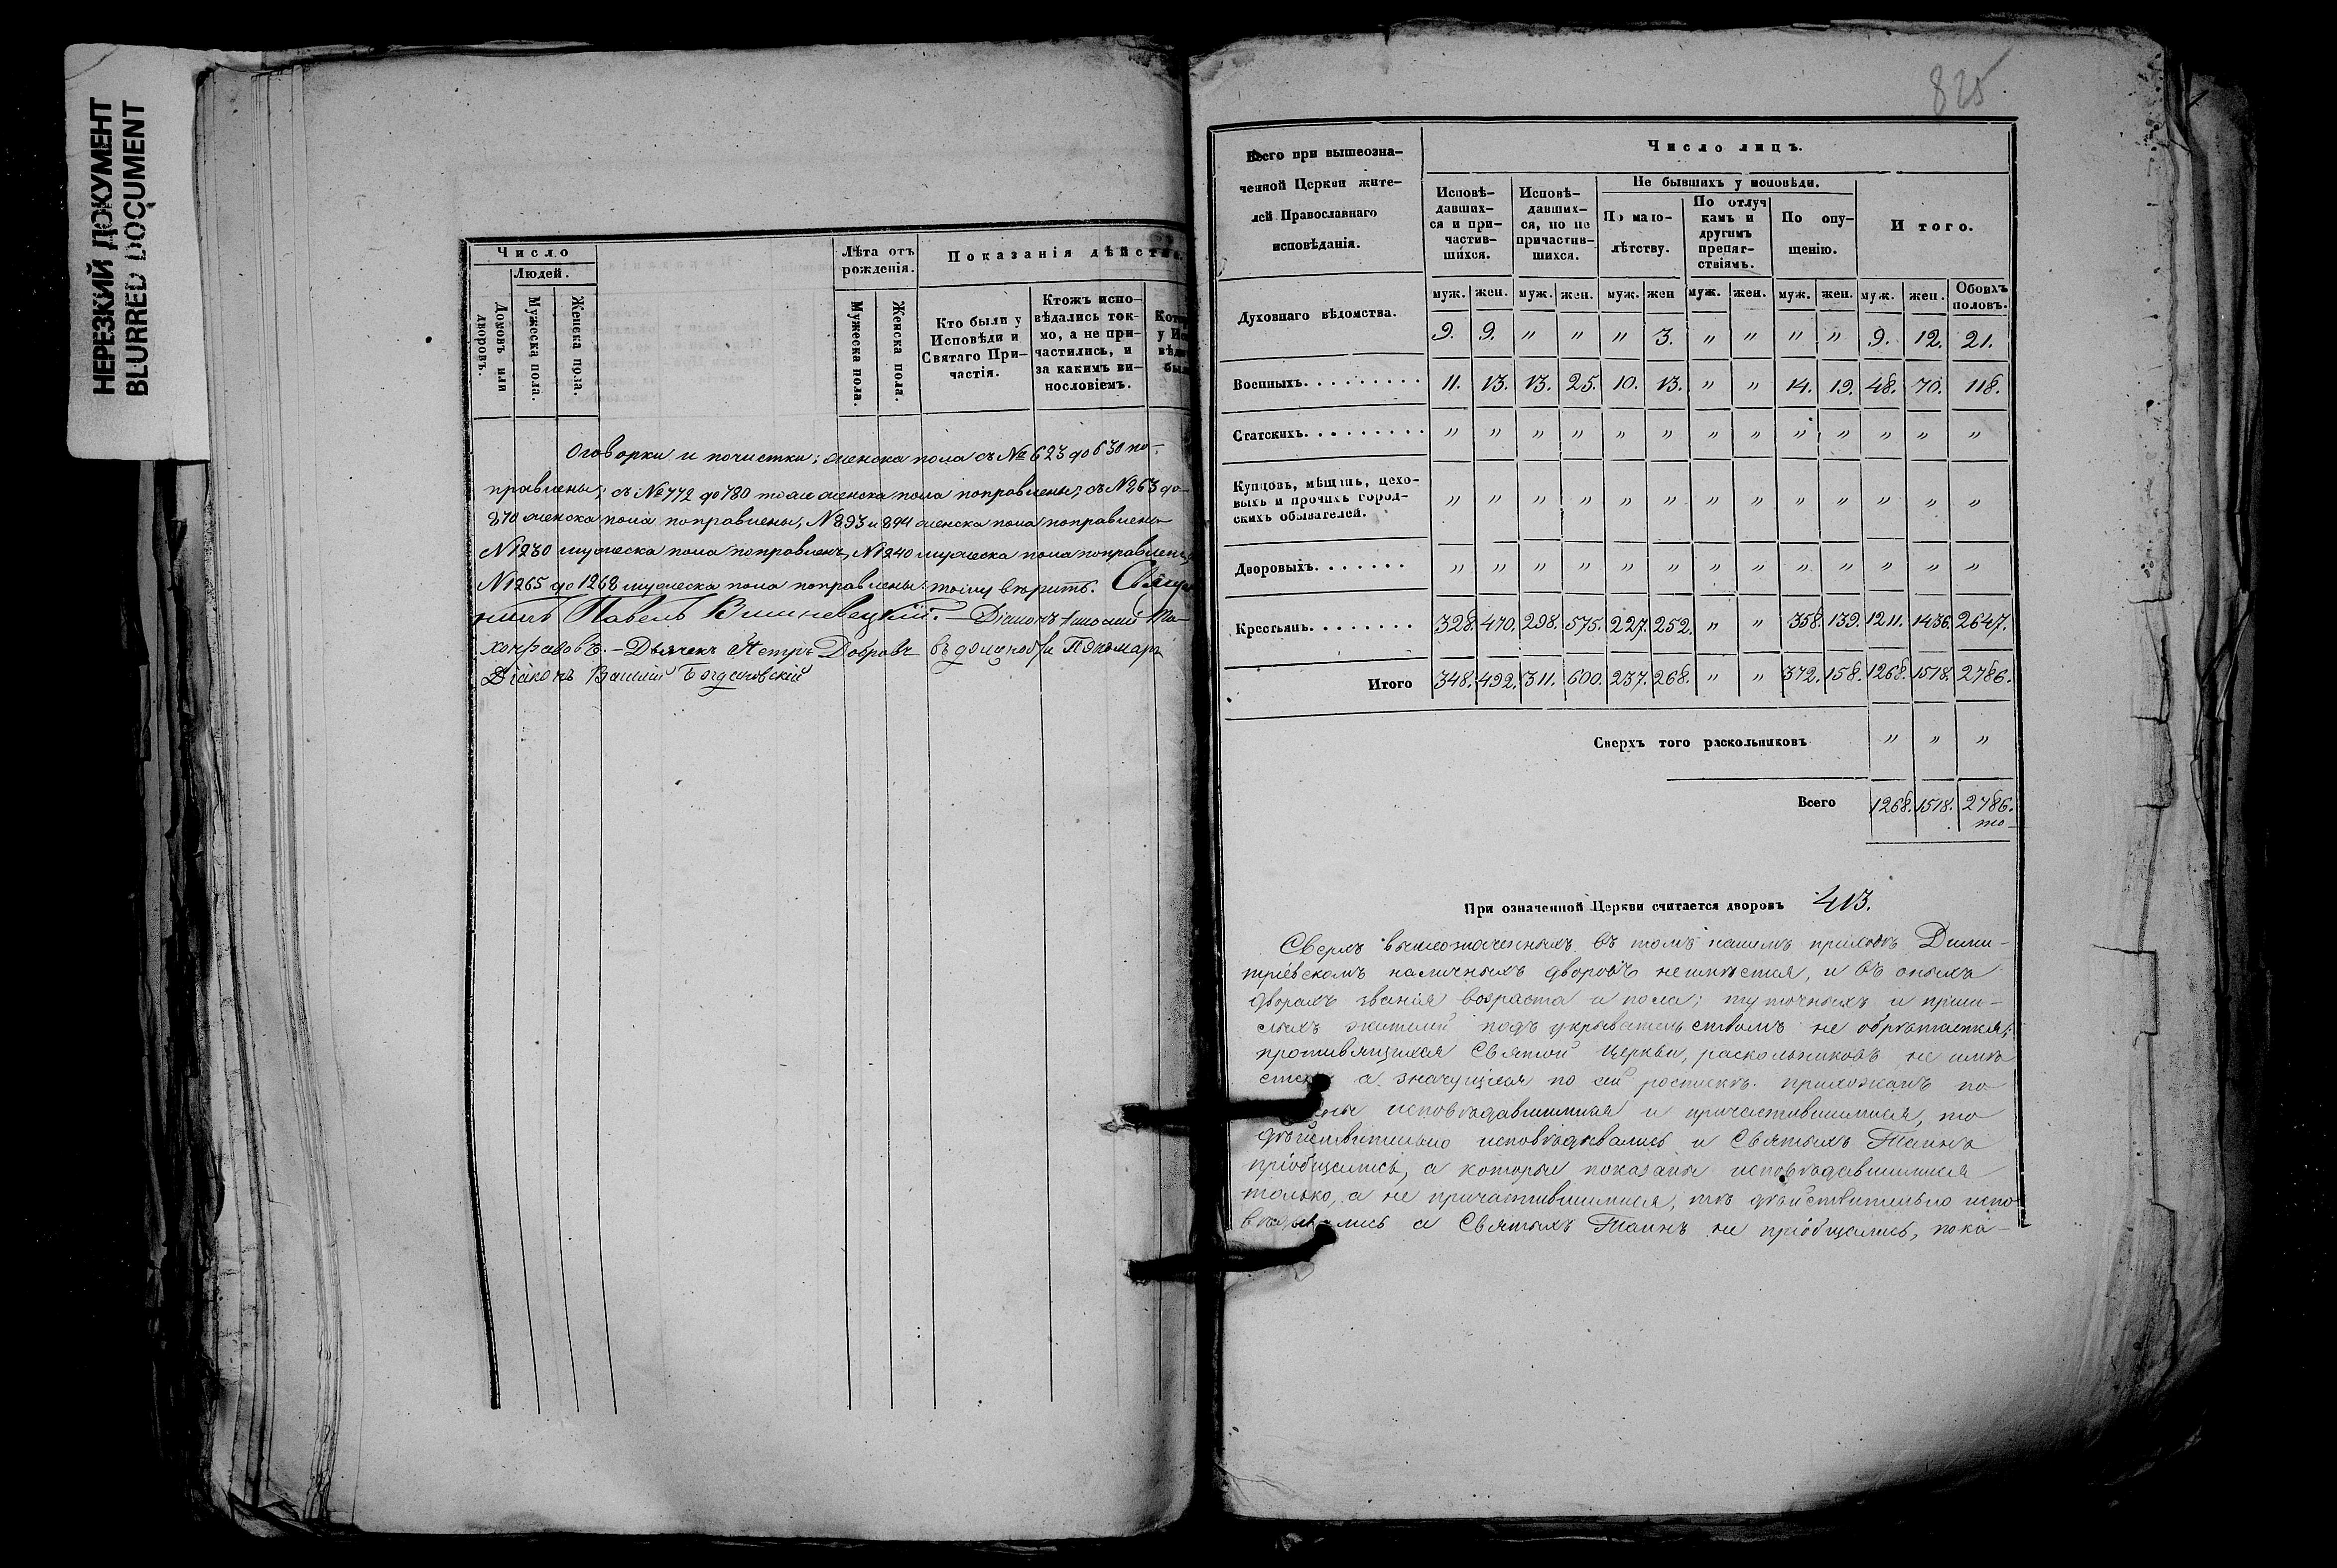 НЕРЕЗКИЙ ДОКУМЕНТ
BLURRED DOCUMENT
Число
Людей.
Домовъ или дворовъ.
Мужеска пола.
Женска пола.
Лѣта отъ рожденія.
Мужеска пола.
Женска пола.
Показанія дѣйств
Кто были у Исповѣди и Святаго Причастія.
Ктожъ исповѣдались токмо, а не причастились, и за какимъ винословіемъ.
Оговорки и почистки: женска пола съ № 623 до 630 по-
правлены; съ № 772 до 780 тоже женска пола поправлены, съ № 863 до
870 женска пола поправлены, № 893 и 894 женска пола поправлены
№ 1230 мужеска пола поправленъ, № 1240 мужеска пола поправленъ,
№ 1265 до 1268 мужеска пола поправлены: тому вѣрить. Свяще
никъ Павелъ Діаконъ
Дьячекъ Петръ Добровъ въ должности Пономаря
Діаконъ Василій Богдановскій
825
Всего при вышеозна-
ченной Церкви жите-
лей Православнаго
исповѣданія.
Число лицъ.
Исповѣ-давших-ся и при-частив-шихся.
Исповѣ-давших-ся, но не причастив-шихся.
Не бывшихъ у исповѣди.
По мало-лѣтству.
По отлуч камъ и другимъ препят-ствіямъ.
По опу-щенію.
Итого.
муж. жен. муж. жен. муж. жен муж. жен. муж. жен. муж. жен. Обоихъ половъ.
Духовнаго вѣдомства. 9. 9. " " " 3. " " " " 9. 12. 21.
Военныхъ. 11. 13. 13. 25. 10. 13. " " 14. 19. 48. 70. 118.
Статскихъ. " " " " " " " " " " " " "
Купцовъ, мѣщанъ, цехо-
выхъ и прочихъ город-
скихъ обывателей. " " " " " " " " " " " " "
Дворовыхъ. " " " " " " " " " " " " "
Крестьянъ. 328. 470. 298. 575. 227. 252. " " 358. 139. 1211. 1436. 2647.
Итого 348. 492. 311. 600. 237. 268. " " 372. 158. 1268. 1518. 2786.
Сверхъ того раскольниковъ " " "
Всего 1268. 1518. 2786.
то
При означенной Церкви считается дворовъ 413.
Сверхъ вышеозначенныхъ въ томъ нашемъ приходѣ Дими-
тріевскомъ наличныхъ дворовъ неимѣется, и въ оныхъ
дворахъ званія возраста и пола; туточныхъ и приш-
лыхъ жителей подъ укрывательствомъ не обрѣтается;
противящихся Святой Церкви, раскольниковъ не имѣ
ется а значущіеся по сей росписи прихожанъ по
исповѣдавшимися и причастившимися, то
дѣйствительно исповѣдывались и Святыхъ Таинъ
пріобщались, а которые показаны исповѣдавшимися
только, а не причастившимися, тѣ дѣйствительно испо
вѣдывались а Святыхъ Таинъ не пріобщались, пока-